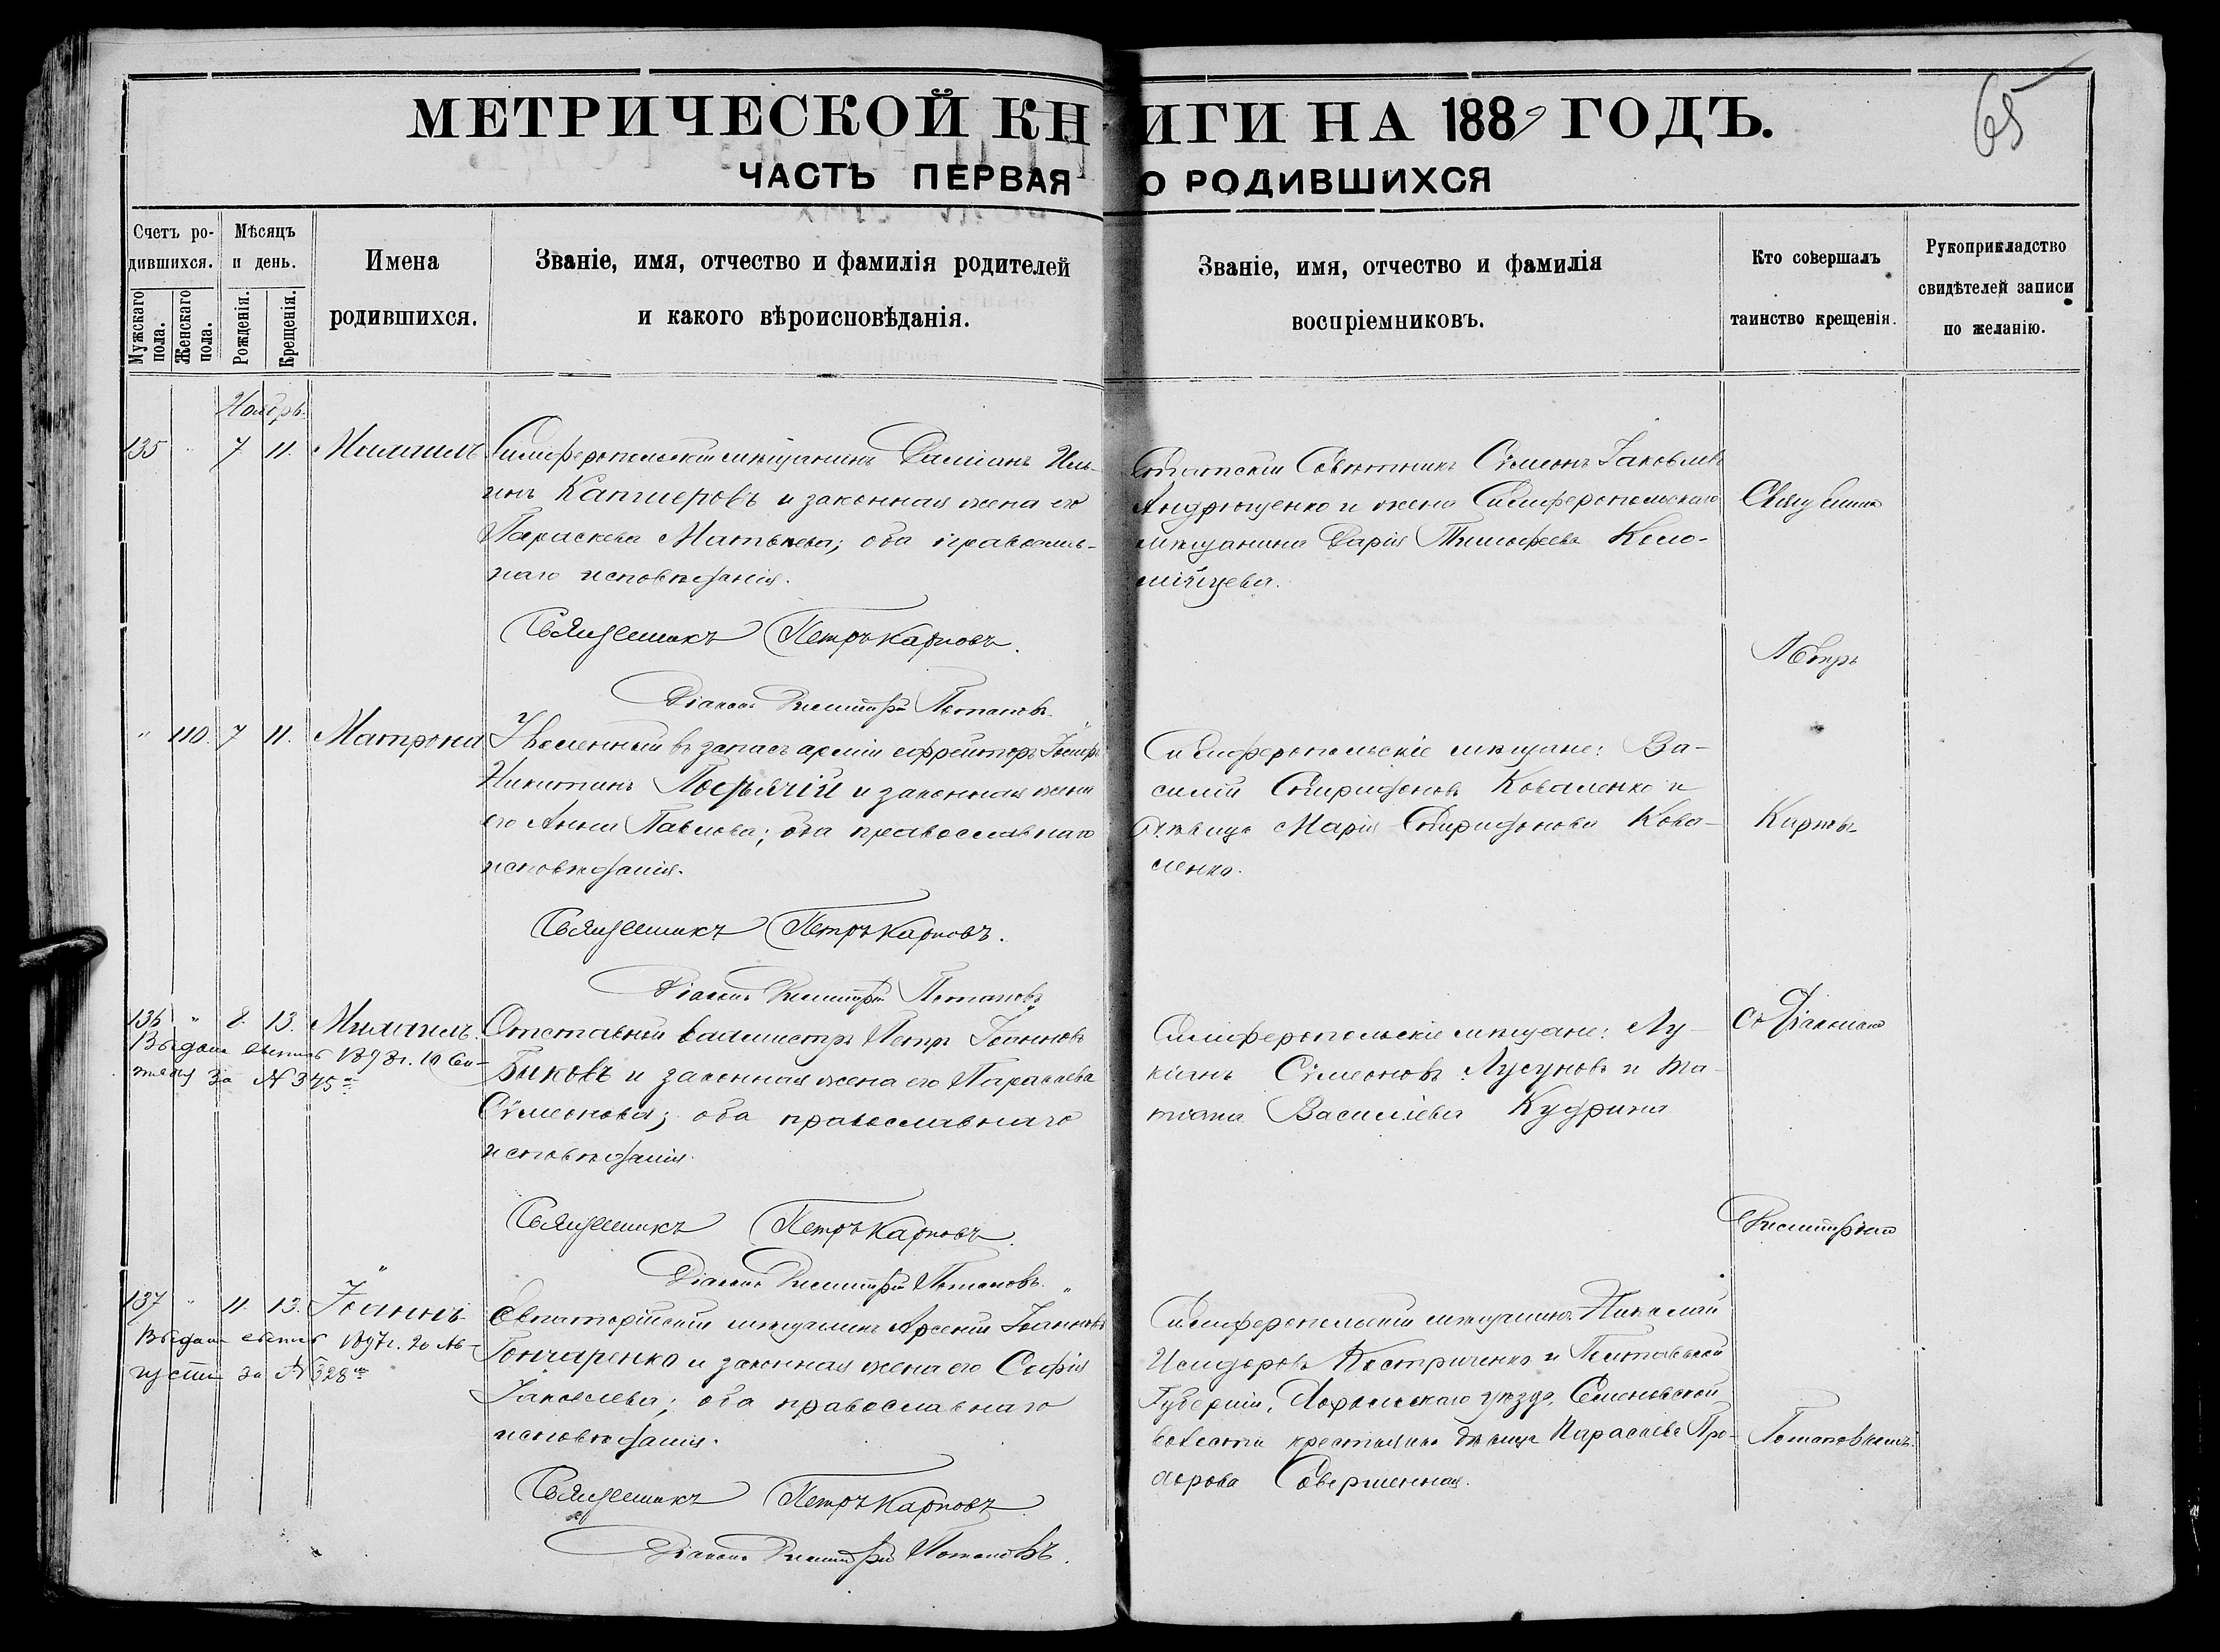 65
МЕТРИЧЕСКОЙ КНИГИ НА 1889 ГОДЪ.
ЧАСТЬ ПЕРВАЯ О РОДИВШИХСЯ
Счетъ ро-
дившихся.
Мужскаго пола.
Женскаго пола.
Мѣсяцъ
и день.
Рожденія.
Крещенія.
Имена
родившихся.
Званіе, имя, отчество и фамилія родителей
и какого вѣроисповѣданія.
Званіе, имя, отчество и фамилія
воспріемниковъ.
Кто совершалъ
таинство крещенія.
Рукоприкладство
свидѣтелей записи
по желанію.
Ноябрь.
135 " 7 11. Михаилъ
Симферопольскій мѣщанинъ Даміанъ Иль-
инъ и законная жена его
Параскева Матвѣева; оба православ-
наго исповѣданія.
Священникъ Петръ Карповъ.
Діаконъ Димитрій Потаповъ.
Статскій Совѣтникъ Сѵмеонъ Іаковлевъ
Андрющенко и жена Симферопольскаго
мѣщанина Дарія Тимофеева Коло-
мійцева.
Священникъ
Петръ
Карповъ
съ Діакономъ
Димитріемъ
Потаповымъ.
" 110. 7 11. Матрона
Уволенный въ запасъ арміи ефрейторъ Іосифъ
Никитинъ и законная жена
его Анна Павлова; оба православнаго
исповѣданія.
Священникъ Петръ Карповъ.
Діаконъ Димитрій Потаповъ
Симферопольскіе мѣщане: Ва-
силій Спиридоновъ Коваленко и
дѣвица Марія Спиридонова Кова-
ленко.
136 " 8. 13. Михаилъ.
Выдана 1898 г. 10 Сен-
тября за № 375
Отставной вахмистръ Петръ Іоанновъ
Быковъ и законная жена его Параскева
Сѵмеонова; оба православнаго
исповѣданія.
Священникъ Петръ Карповъ.
Діаконъ Димитрій Потаповъ.
Симферопольскіе мѣщане: Лу-
кіанъ Сѵмеоновъ Лусуновъ и Та-
тіана Василіева Кудрина
137 " 11. 13. Іоаннъ
Выдана 1897 г. 20 Ав-
густа за № 328
Евпаторійскій мѣщанинъ Арсеній Іоанновъ
Гончаренко и законная жена его Софія
Іаковлева; оба православнаго
исповѣданія.
Священникъ Петръ Карповъ
Діаконъ Димитрій Потаповъ.
Симферопольскій мѣщанинъ Николай
Исидоровъ Костриченко и Полтавской
Губерніи, Хорольскаго уѣзда, Семеновской
волости крестьянка дѣвица Параскева Про-
хорова Совершенная.